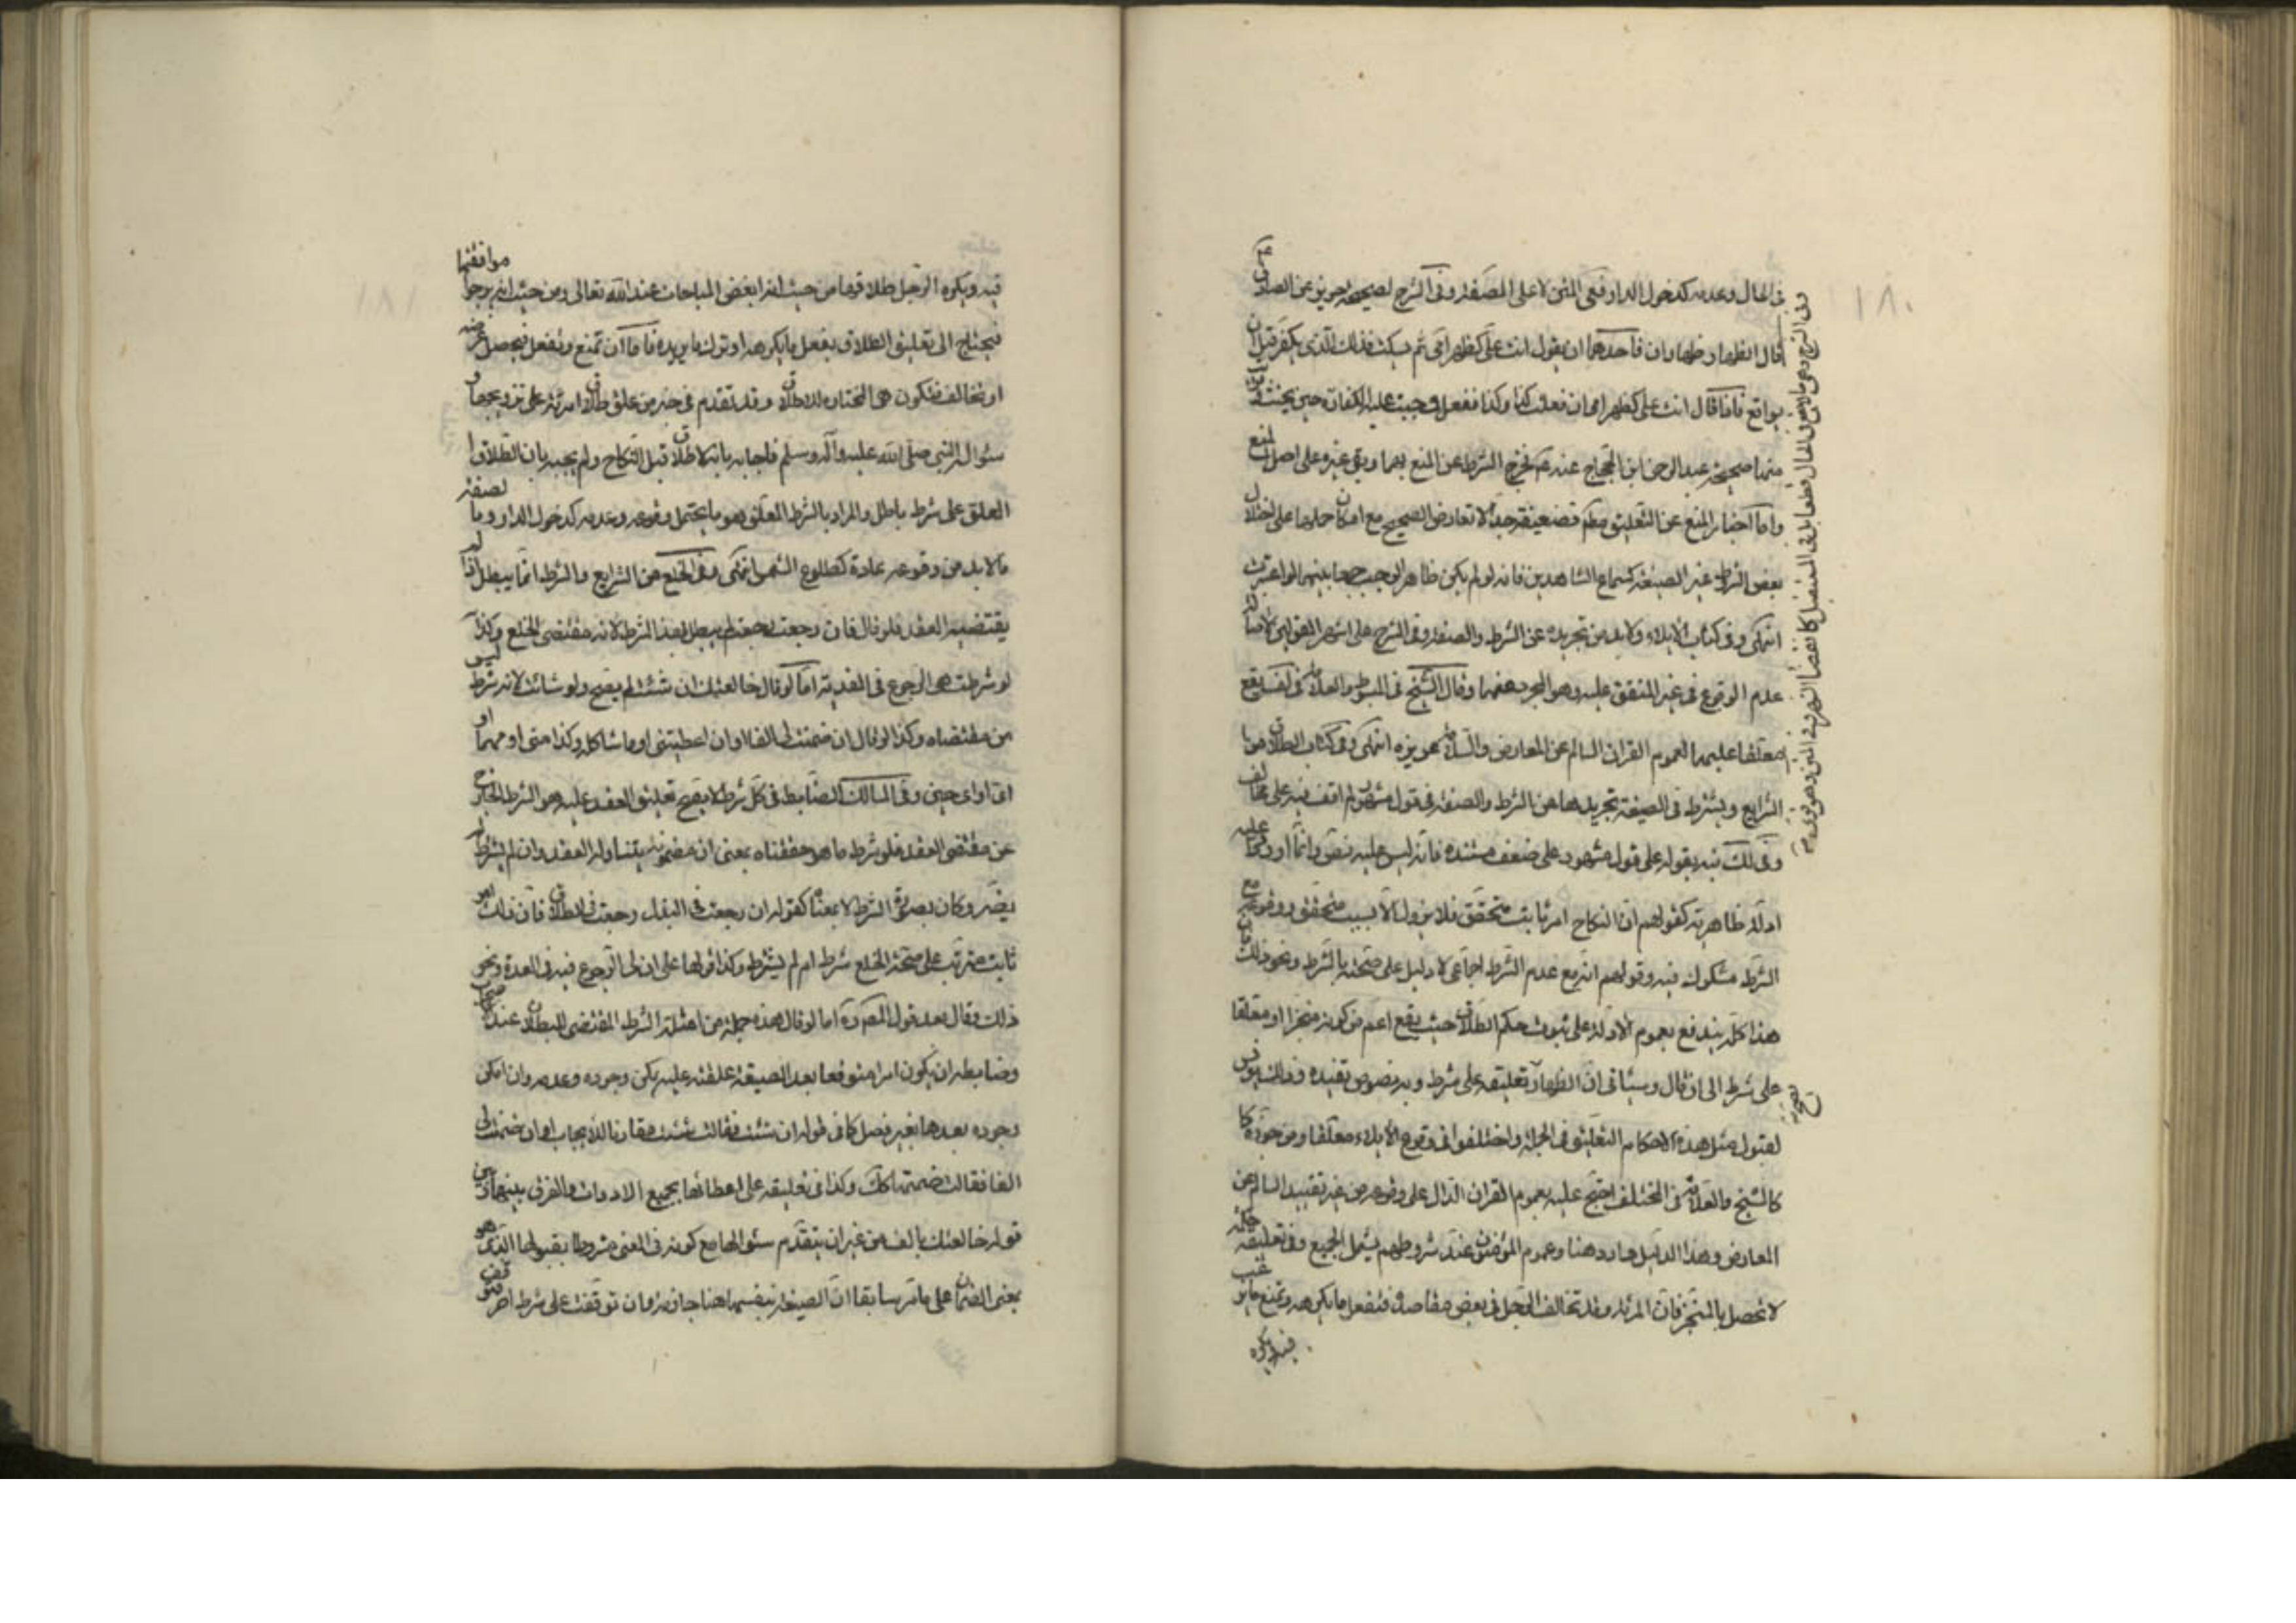 ١٨٠
في الحال وعدمه كدخول الدار وفي المتن لا على الصفة وفي الشرح لصحيحة حريز عن الصادق ع
قال الظهار ظهاران فاحدهما ان يقول انت علي كظهر امي ثم يسكت فذلك الذي يكفر قبل ان
يواقع فاذا قال انت علي كظهر امي ان فعلت كذا وكذا ففعل وجبت عليه الكفارة حين يحنث
منها صحيحة عبد الرحمن ابن الحجاج عنه ع فخرج الشرط عن المنع بهما وبقي غيره على اصل المنع
واما اخبار المنع عن التعليق مطم فضعيفة جدا لا تعارض الصحيح مع امكان حملها على اختلال
بعض الشرط غير الصيغة كسماع الشاهدين فانه لو لم يكن ظاهرا لوجب جمعا بينهما لو اعتبرت
انتهى وفي كتاب الايلاء ولا بد من تجريده عن الشرط والصفة وفي الشرح على اشهر القولين لاصالة
عدم الوقوع في غير المتفق عليه وهو المجرد عنهما وقال الشيخ في المبسوط والعلامة في لف يقع
معلقا عليهما لعموم القران السالم عن المعارض والسلامة تجويزه انتهى وفي كتاب الطلاق من
الشرايع ويشترط في الصيغة تجريدها عن الشرط والصفة في قول مشهور لم اقف فيه على مخالف
وفي لك نبه بقوله على قول مشهور على ضعف مستنده فانه ليس عليه نص وانما اوردوا عليه
ادلة ظاهرية كقولهم ان النكاح امر ثابت متحقق فلا يزول الا بسبب متحقق ووقوعه مع
الشرط مشكوك فيه وقولهم انه مع عدم الشرط اجماعي لا دليل على صحته بالشرط ونحو ذلك
هذا كله يندفع بعموم الادلة على ثبوت حكم الطلاق حيث يقع اعم من كونه منجزا او معلقا
على شرط الى ان قال وسياتي ان الظهار تعليقه على شرط وبه نصوص تفيده وذلك يونس
لقبول مثل هذه الاحكام التعليق في الجملة واختلفوا في وقوع الايلاء معلقا ومن جوزه
كالشيخ والعلامة في المختلف احتج عليه بعموم القران الدال على وقوعه من غير تقييد السالم عن
المعارض وهذا الدليل وارد هنا وعموم المؤمنون عند شروطهم يشمل الجميع وفي تعليقه حكمة
لا تحصل بالمنجز فان المرئة قد تخالف الرجل في بعض مقاصده فتفعل ما يكرهه وتمنع ما يرغب
فيه ويكره
١٨١
فيه ويكره الرجل طلاقها من حيث انه ابغض المباحات عند الله تعالى ومن حيث انه يرجو موافقتها
فيحتاج الى تعليق الطلاق بفعل ما يكرهه او ترك ما يريده فاما ان تمتنع وتفعل فيحصل غرضه
او تخالف فتكون هي المختارة للطلاق وقد تقدم في خبر من علق طلاق امرئة على تزويجها و
سئوال النبي صلى الله عليه وآله وسلم فاجابه بانه لا طلاق قبل النكاح ولم يجبه بان الطلاق
المعلق على شرط باطل والمراد بالشرط المعلق هو ما يحتمل وقوعه وعدمه كدخول الدار وبالصفة
ما لا بد من وقوعه عادة كطلوع الشمس انتهى وفي الخلع من الشرايع والشرط انما يبطل اذا لم
يقتضيه العقد فلو قال فان رجعت رجعت لم يبطل بهذا الشرط لانه مقتضى الخلع وكذا
لو شرطت هي الرجوع في الفدية اما لو قال خالعتك ان شئت لم يصح ولو شائت لانه شرط ليس
من مقتضاه وكذا لو قال ان ضمنت لي الفا او ان اعطيتني او ما شاكله وكذا متى او مهما او
اي وقت او اي حين وفي المسالك الضابط في كل شرط لا يصح تعليق العقد عليه هو الشرط الخارج
عن مقتضى العقد فلو شرط ما هو مقتضاه بمعنى ان مضمونه يتناوله العقد وان لم يشترط لم
يضر وكان بصورة الشرط لا بمعناه كقوله ان رجعت في البذل رجعت في الطلاق فان ذلك امر
ثابت مترتب على صحة الخلع شرط ام لم يشترط وكذا قولها على ان لي الرجوع فيه في العدة ونحو
ذلك وقال بعد قول المصنف ره اما لو قال هذه جملة من امثلة الشرط المقتضي للبطلان عند
وضابطه ان يكون امرا متوقعا بعد الصيغة علقته عليه يمكن وجوده وعدمه وان امكن
وجوده بعدها بغير فصل كما في قوله ان شئت فقالت شئت مقارنا للايجاب او ان ضمنت لي
الفا فقالت ضمنتها كك وكذا في تعليقه على اعطائها بجميع الادوات والفرق بينهما وبين
قوله خالعتك بالف من غير ان يتقدم سئوالها مع كونه في المعنى مشروطا بقبولها الذي هو
بمعنى الضمان على ما مر سابقا ان الصيغة بنفسها هنا جازمة وان توقفت على شرط اخر